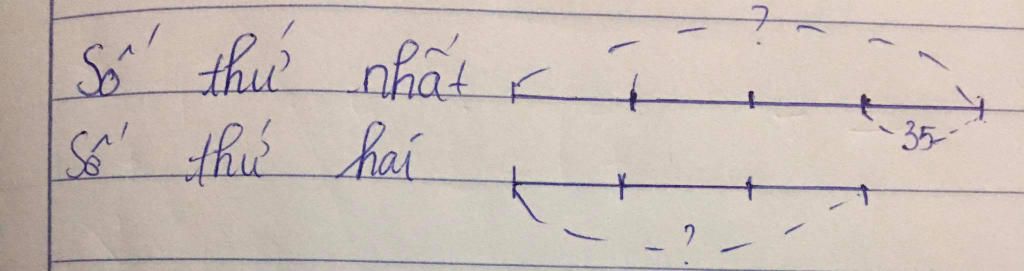 ?
Số thứ nhất
35
Số thứ hai
?